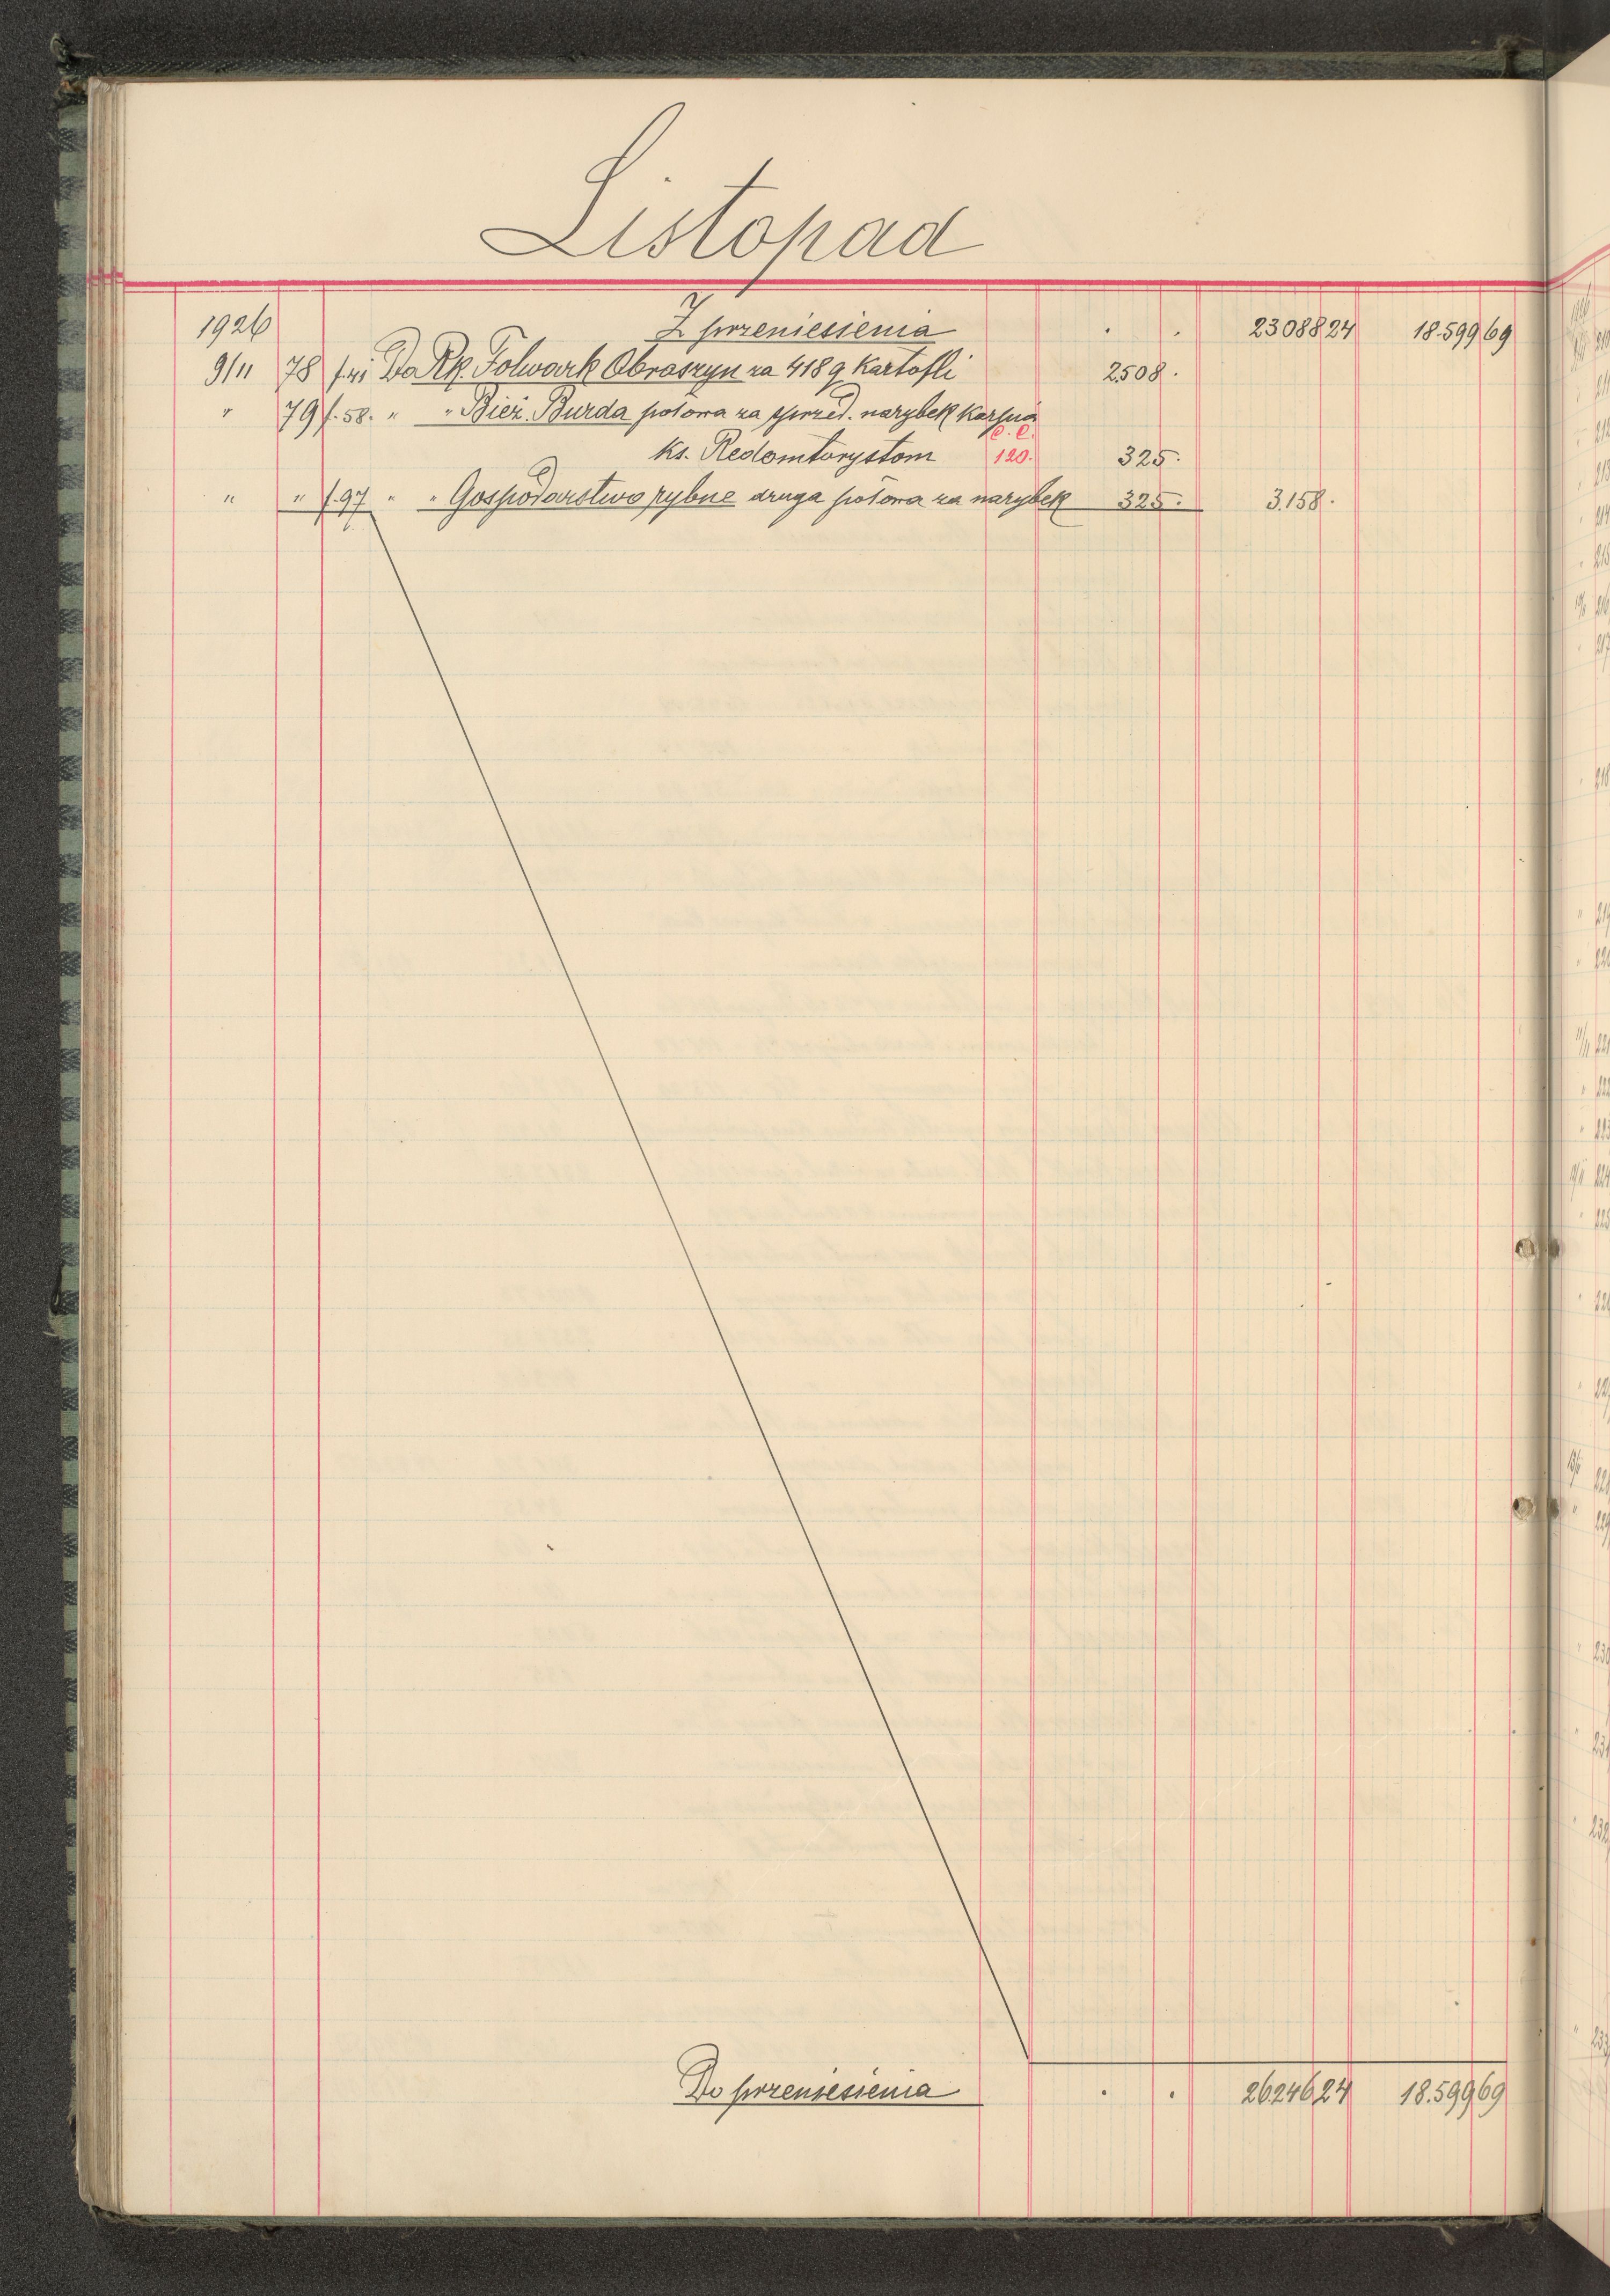 Listopad
1926 Z przeniesienia . . 23088 24 18.599 69
9/11 78 Do Rk. Folwark Obroszyn za 418 q Kartofli 2508 .
" 79 f. 58. " " Bież. Burda połowa za sprzed. narybek Karpia
ks. Redemtorystom 120. 325.
" " f. 97 " " Gospodarstwo rybne druga połowa za narybek 325. 3.158.
Do przeniesienia . . 26246 24 18.599 69